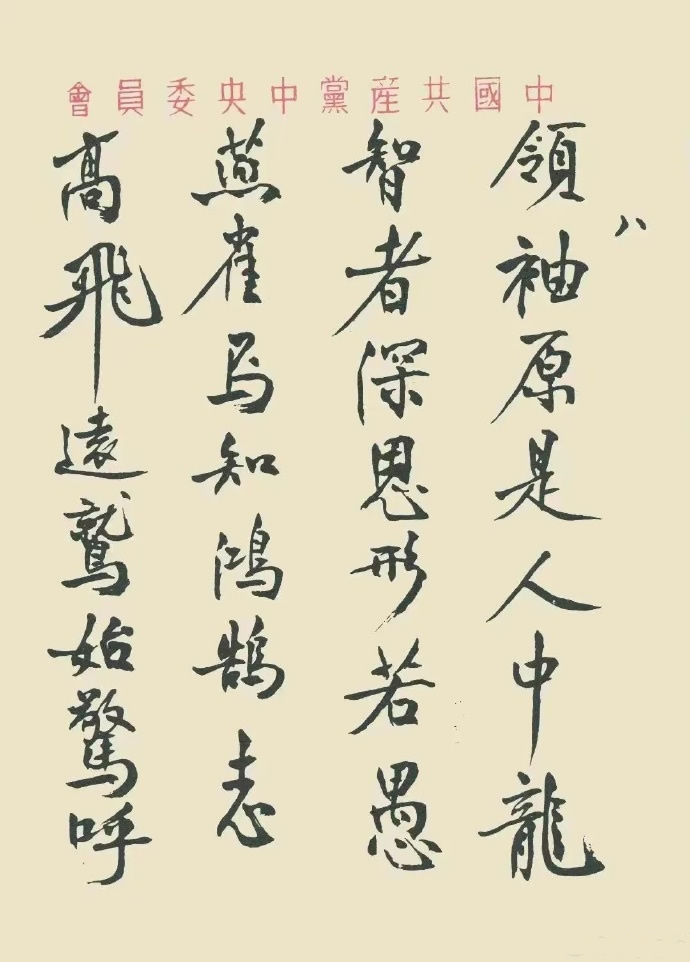 中國共産黨中央委員會
八
領袖原是人中龍
智者深思形若愚
燕雀焉知鴻鵠志
高飛遠鷲始驚呼